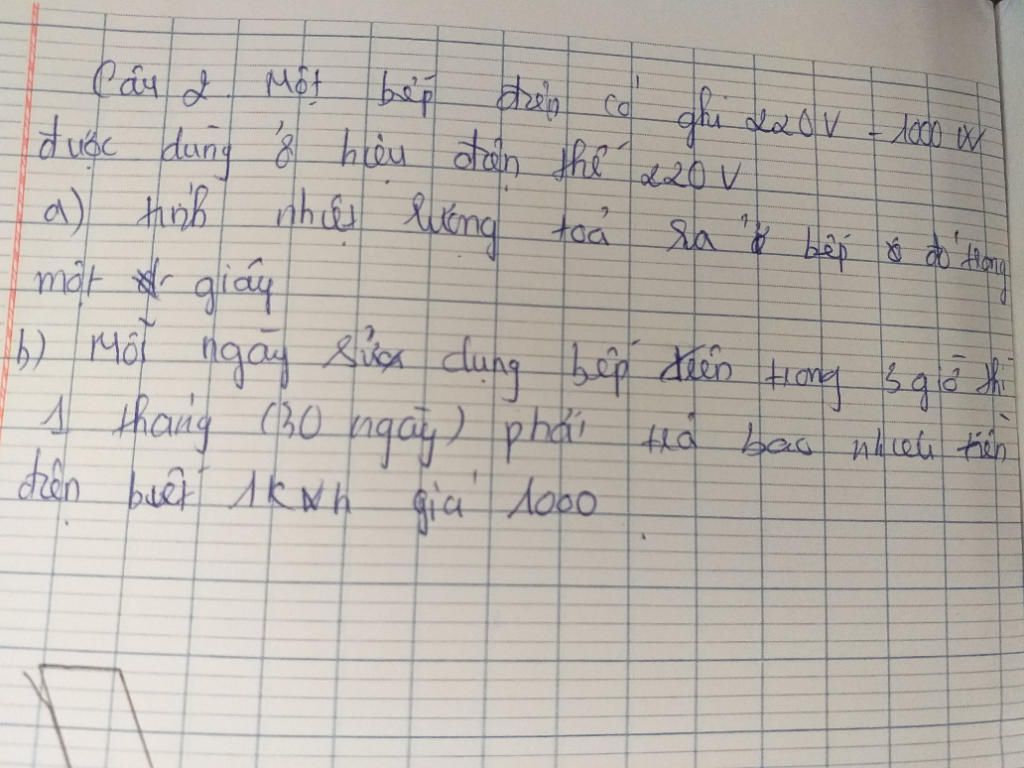 Câu 2. Một bếp điện có ghi 220V - 1000W
được dùng ở hiệu điện thế 220V
a) tính nhiệt lượng toả ra ở bếp đó trong
một giây
b) Mỗi ngày sử dụng bếp điện trong 3 giờ thì
1 tháng (30 ngày) phải trả bao nhiêu tiền
điện biết 1KWh giá 1000